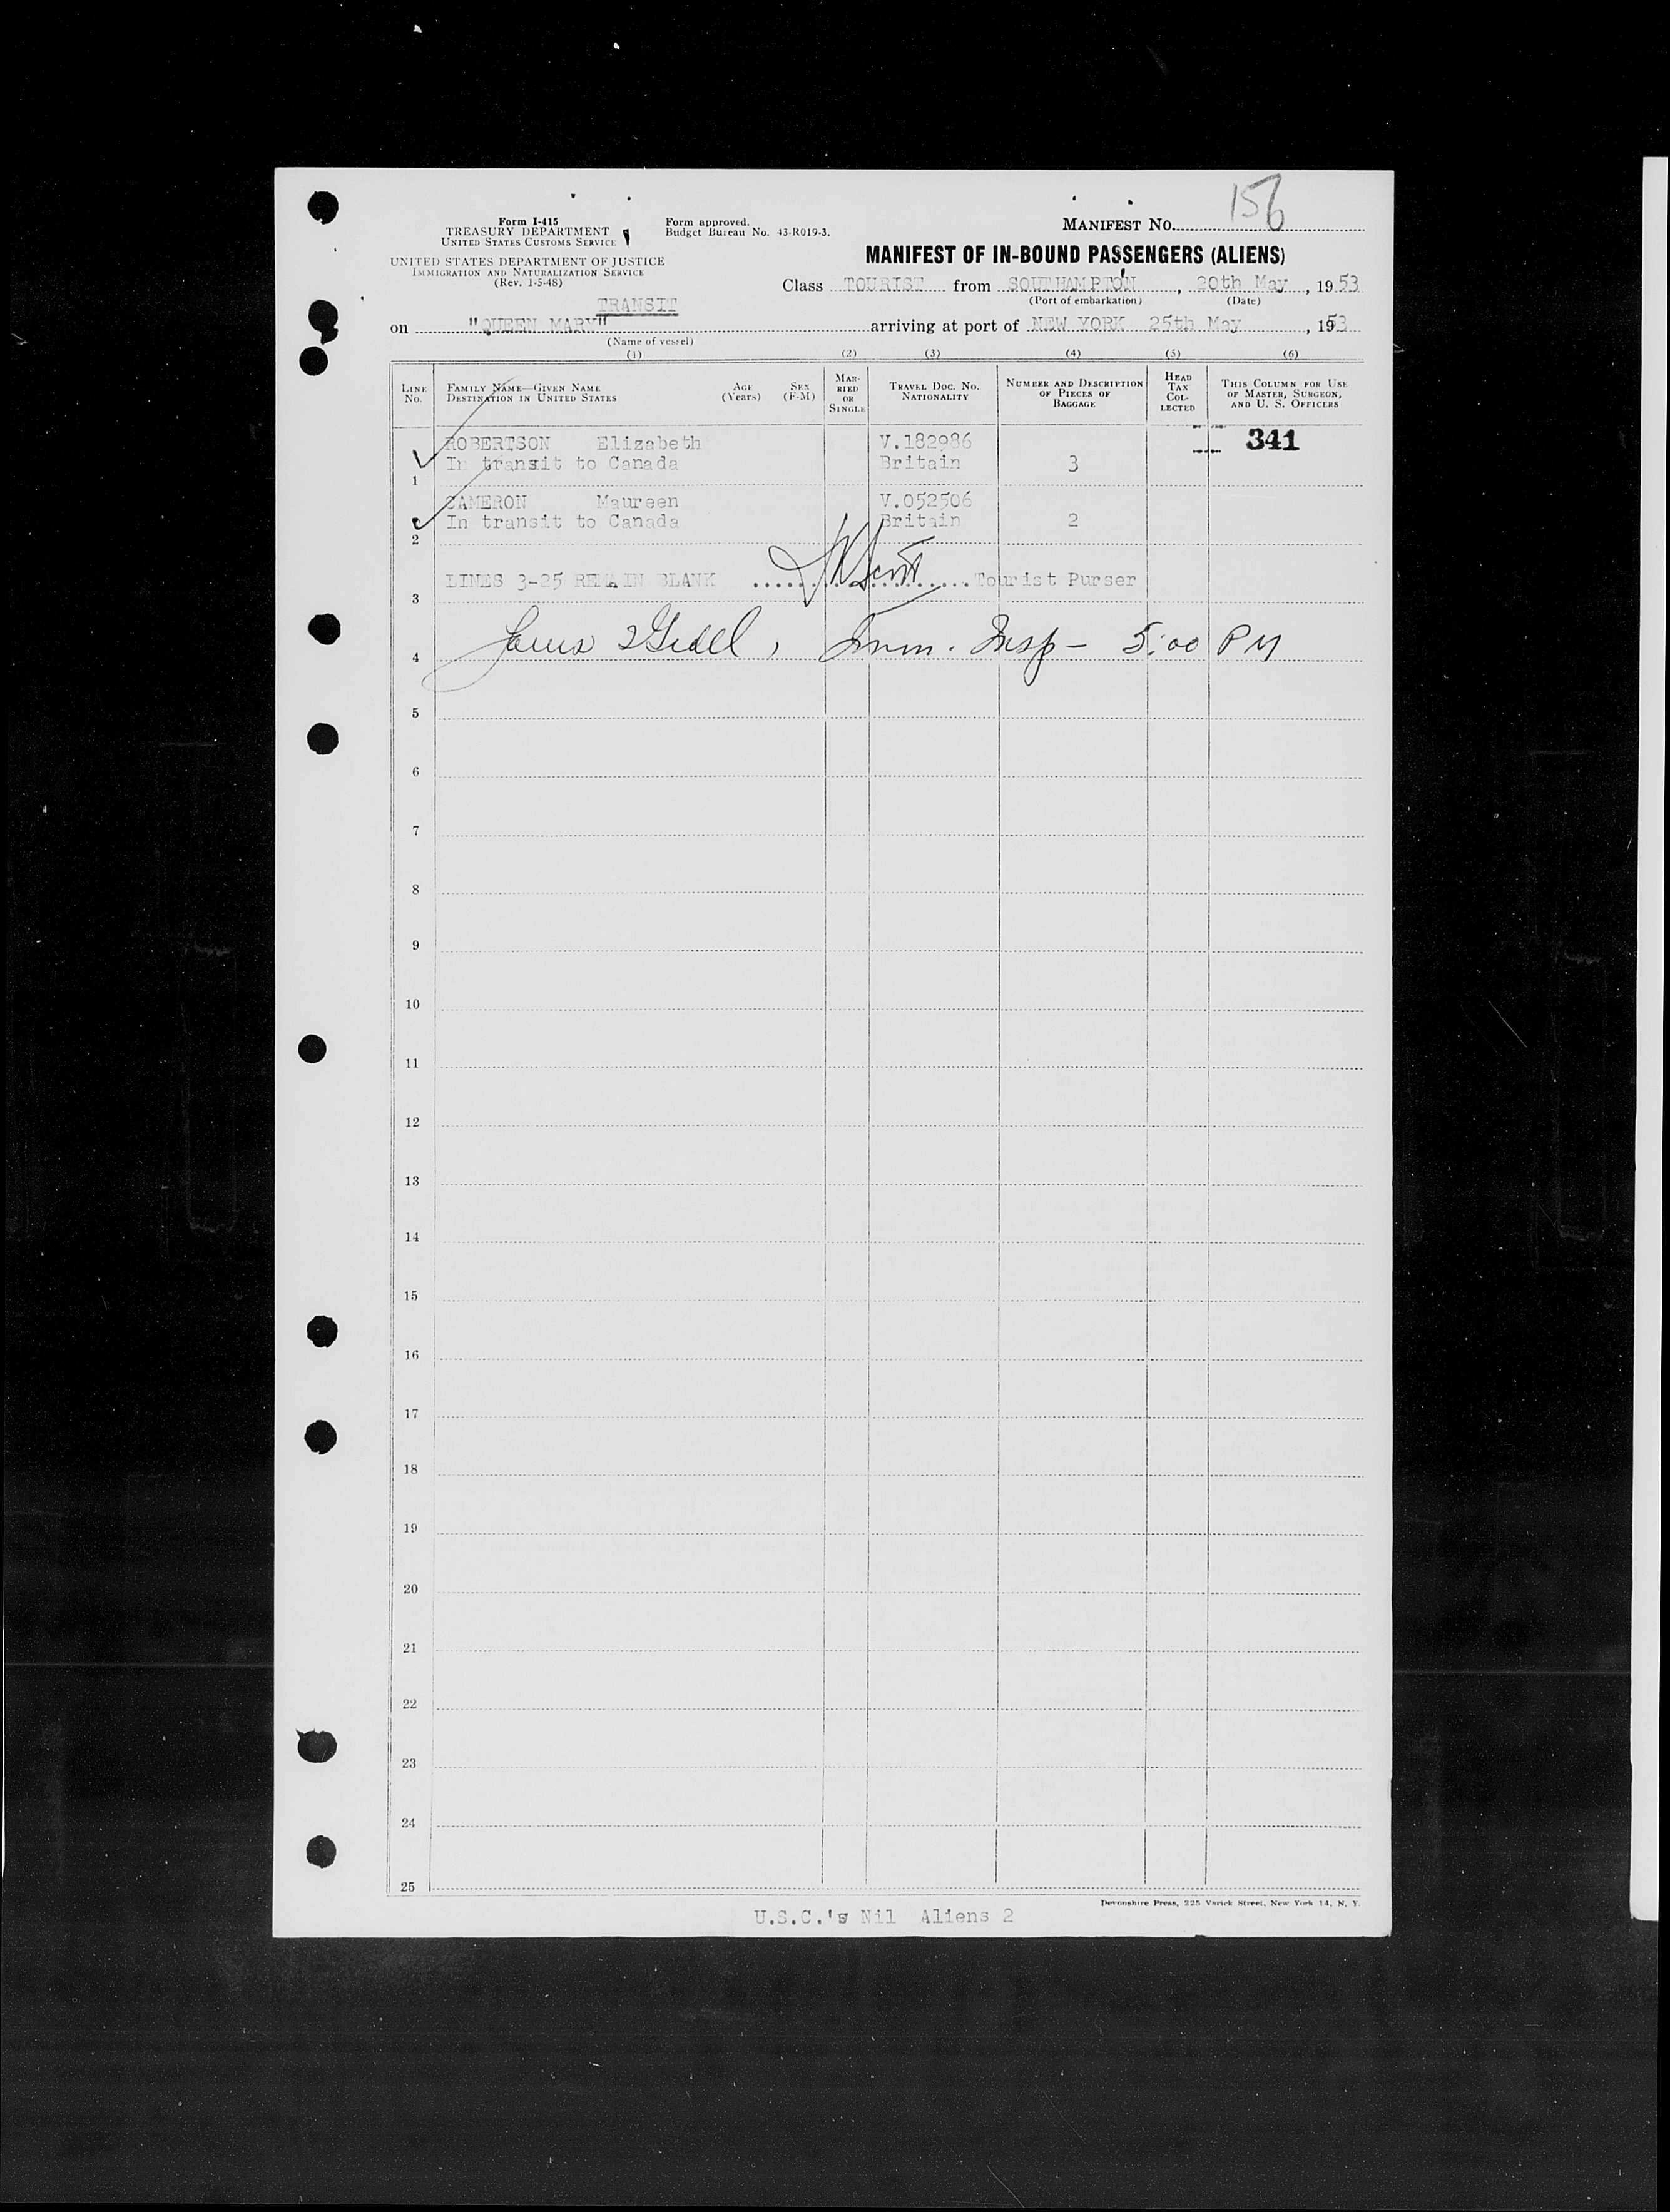 156
Form I-415
TREASURY DEPARTMENT
UNITED STATES CUSTOMS SERVICE
Form approved.
Budget Bureau No. 43-R019-3.
MANIFEST No.
UNITED STATES DEPARTMENT OF JUSTICE
IMMIGRATION AND NATURALIZATION SERVICE
(Rev. 1-5-48)
MANIFEST OF IN-BOUND PASSENGERS (ALIENS)
Class TOURIST from SOUTHAMPTON, 20th May, 1953
(Port of embarkation) (Date)
TRANSIT
on "QUEEN MARY" arriving at port of NEW YORK 25th May, 1953
(Name of vessel)
(1) (2) (3) (4) (5) (6)
LINE No. FAMILY NAME—GIVEN NAME DESTINATION IN UNITED STATES AGE (Years) SEX (F-M) MARRIED OR SINGLE TRAVEL DOC. No. NATIONALITY NUMBER AND DESCRIPTION OF PIECES OF BAGGAGE HEAD TAX COLLECTED THIS COLUMN FOR USE OF MASTER, SURGEON, AND U. S. OFFICERS
ROBERTSON Elizabeth V.182986 341
In transit to Canada Britain 3
1
CAMERON Maureen V.052506
In transit to Canada Britain 2
2
LINES 3-25 REMAIN BLANK Scott Tourist Purser
3
Imm. Insp - 5:00 PM
4
5
6
7
8
9
10
11
12
13
14
15
16
17
18
19
20
21
22
23
24
25
Devonshire Press, 225 Varick Street, New York 14, N. Y.
U.S.C.'s Nil Aliens 2